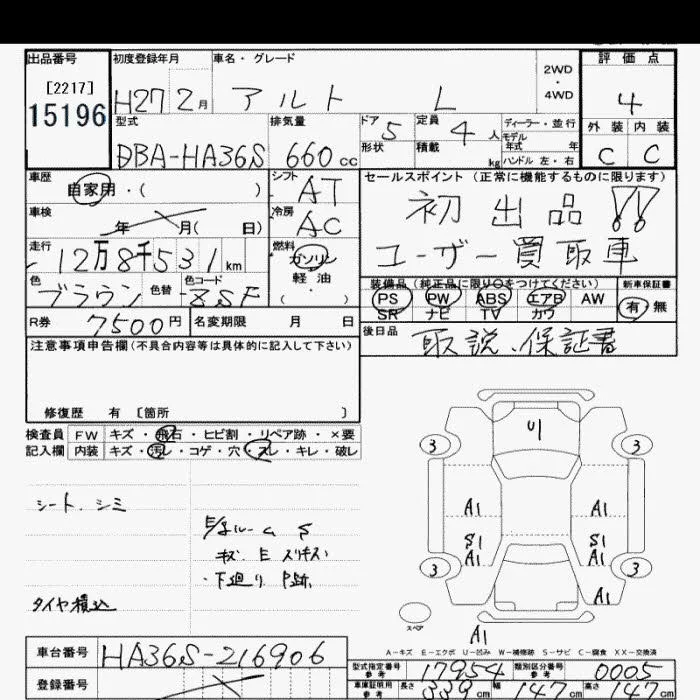 出品番号 初度登録年月 車名・グレード 2WD・4WD 評価点
[2217]
15196 H27 2月 アルト L 4
外装 内装
C C
型式 排気量 ドア 定員 ディーラー・並行
DBA-HA36S 660cc 5 4人 モデル年式 年
形状 積載 kg ハンドル 左・右
車歴 シフト セールスポイント(正常に機能するものに限ります)
自家用・( ) AT 初出品!!
車検 冷房
年 月( 日) AC ユーザー買取車
走行 燃料
12万8千531km ガソリン
軽油
( ・ )
色 色替 色コード
ブラウン ZSF
装備品(純正品に限り○をつけてください) 新車保証書
PS PW ABS エアB AW 有・無
SR ナビ TV カワ
R券 7500円 名変期限 月 日
後日品 取説、保証書
注意事項申告欄(不具合内容等は具体的に記入して下さい)
修復歴 有 〔箇所 〕
検査員 FW キズ・飛石・ヒビ割・リペア跡・×要
記入欄 内装 キズ・汚レ・コゲ・穴・スレ・キレ・破レ
シート、シミ
キズ E
・下廻り P跡
タイヤ積込
U1
3 3
A1 A1
S1 S1
A1 A1
3 3
A1
スペア
A1
A-キズ E-エクボ U-凹み W-補修跡 S-サビ C-腐食 XX-交換済
車台番号 HA36S-216906
型式指定番号 参考 17954 類別区分番号 参考 0005
登録番号
車庫証明用 参考 長さ 339cm 幅 147cm 高さ 147cm